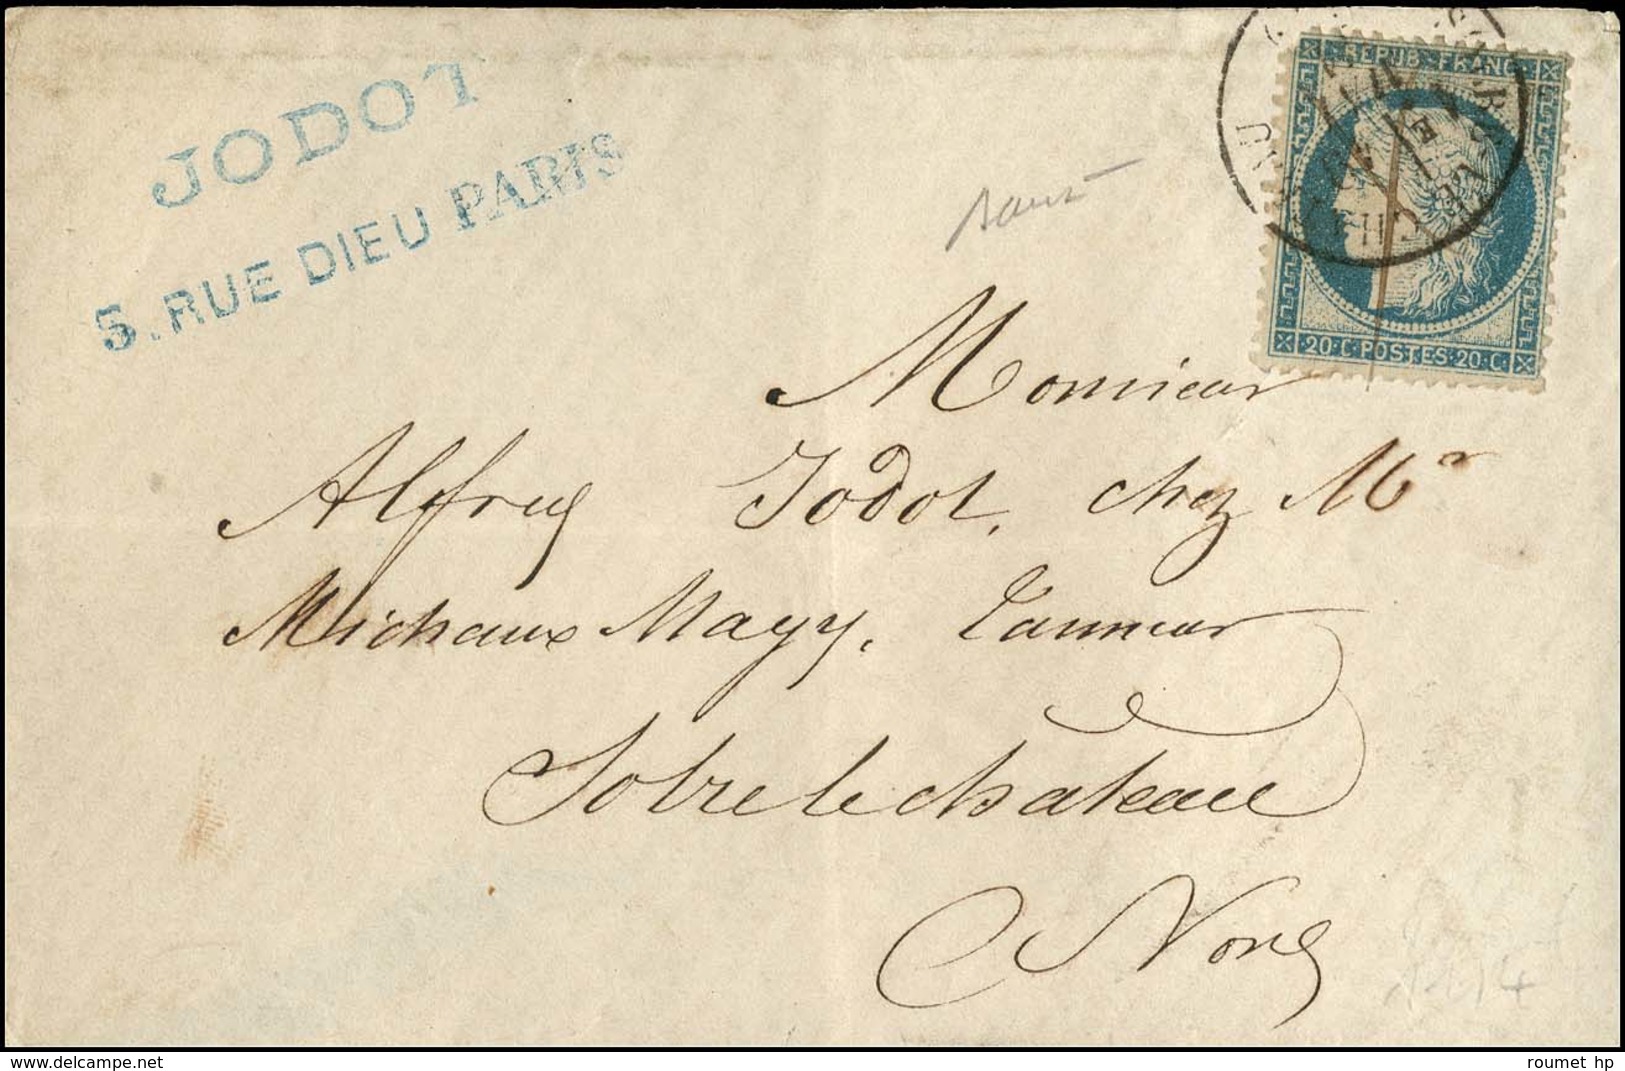 JODOT
5, RUE DIEU PARIS
REPUB. FRANC.
20.C. POSTES. 20.C.
Monsieur
Alfred Jodot, chez Mr
Michaux Mayy, Tanneur
Solre le château
Nord
1114
roumet hp